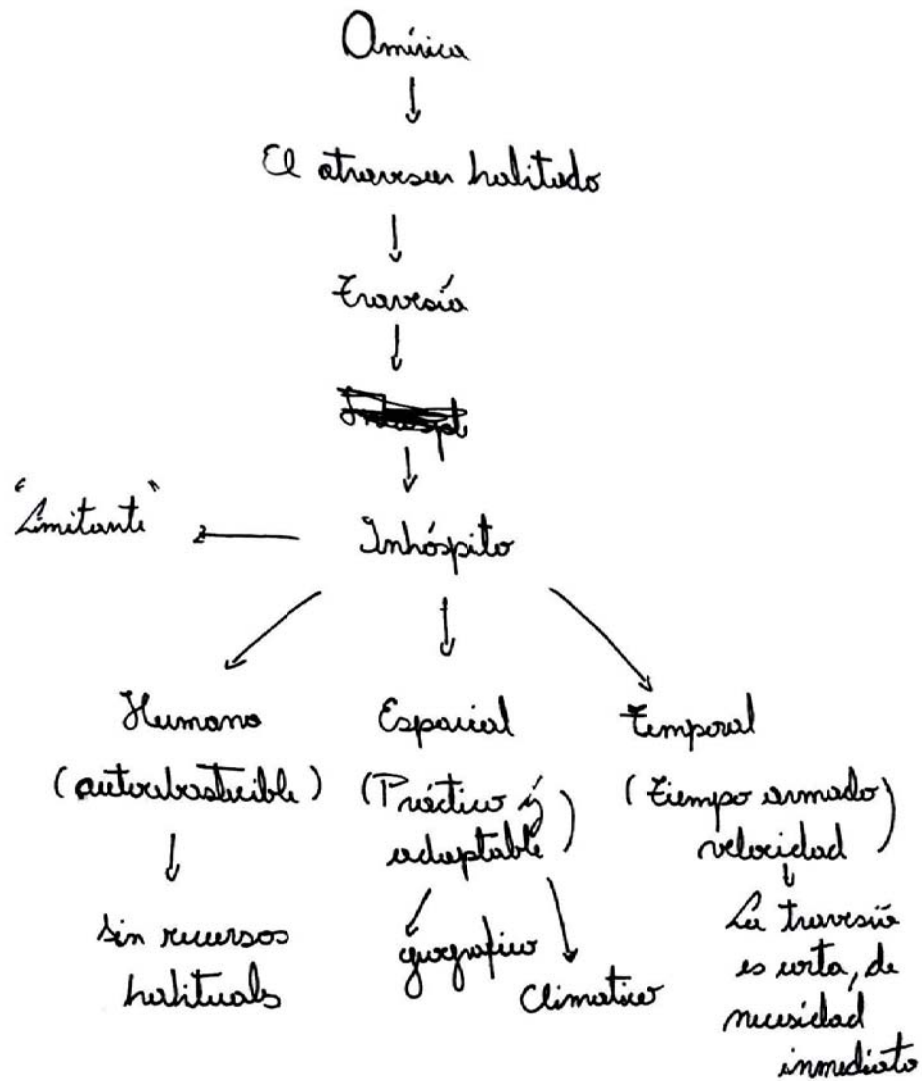 América
El atravesar habitado
Travesía
"Limitante"
Inhóspito
Humano
(autoabastecible)
sin recursos
habituals
Espacial
(Práctico y
adaptable)
geografico
Climatico
Temporal
(Tiempo armado)
velocidad
La travesía
es corta, de
necesidad
inmediato